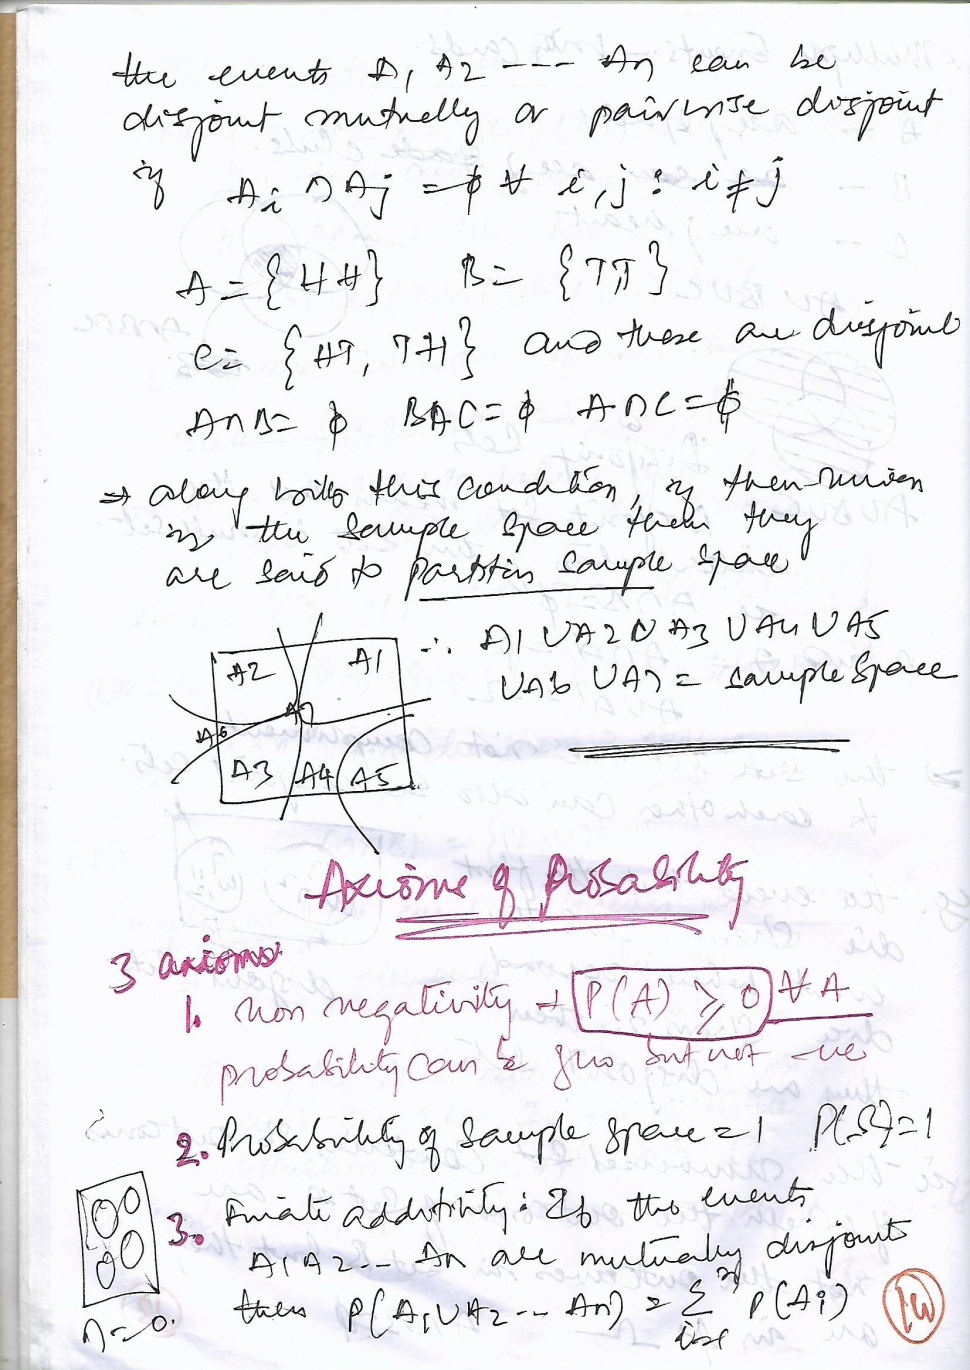 the events A1 A2 --- An can be
disjoint mutually or pairwise disjoint
if Ai ∩ Aj = ϕ ∀ i,j : i ≠ j
A = {HH} B = {TT}
C = {HT, TH} and these are disjoint
A∩B = ϕ B∩C = ϕ A∩C = ϕ
⇒ along with this condition, if their union
is the sample space then they
are said to partition sample space
A2 A1
A7
A6
A3 A4 A5
∴ A1 ∪ A2 ∪ A3 ∪ A4 ∪ A5
∪ A6 ∪ A7 = sample space
Axioms of Probability
3 axioms:
1. non negativity → P(A) ≥ 0 ∀ A
probability can be zero but not -ve
2. Probability of sample space = 1 P(S) = 1
3. Finite additivity: If the events
A1 A2 -- An are mutually disjoints
then P(A1 ∪ A2 -- An) = Σ P(Ai)
n
∩ = 0.